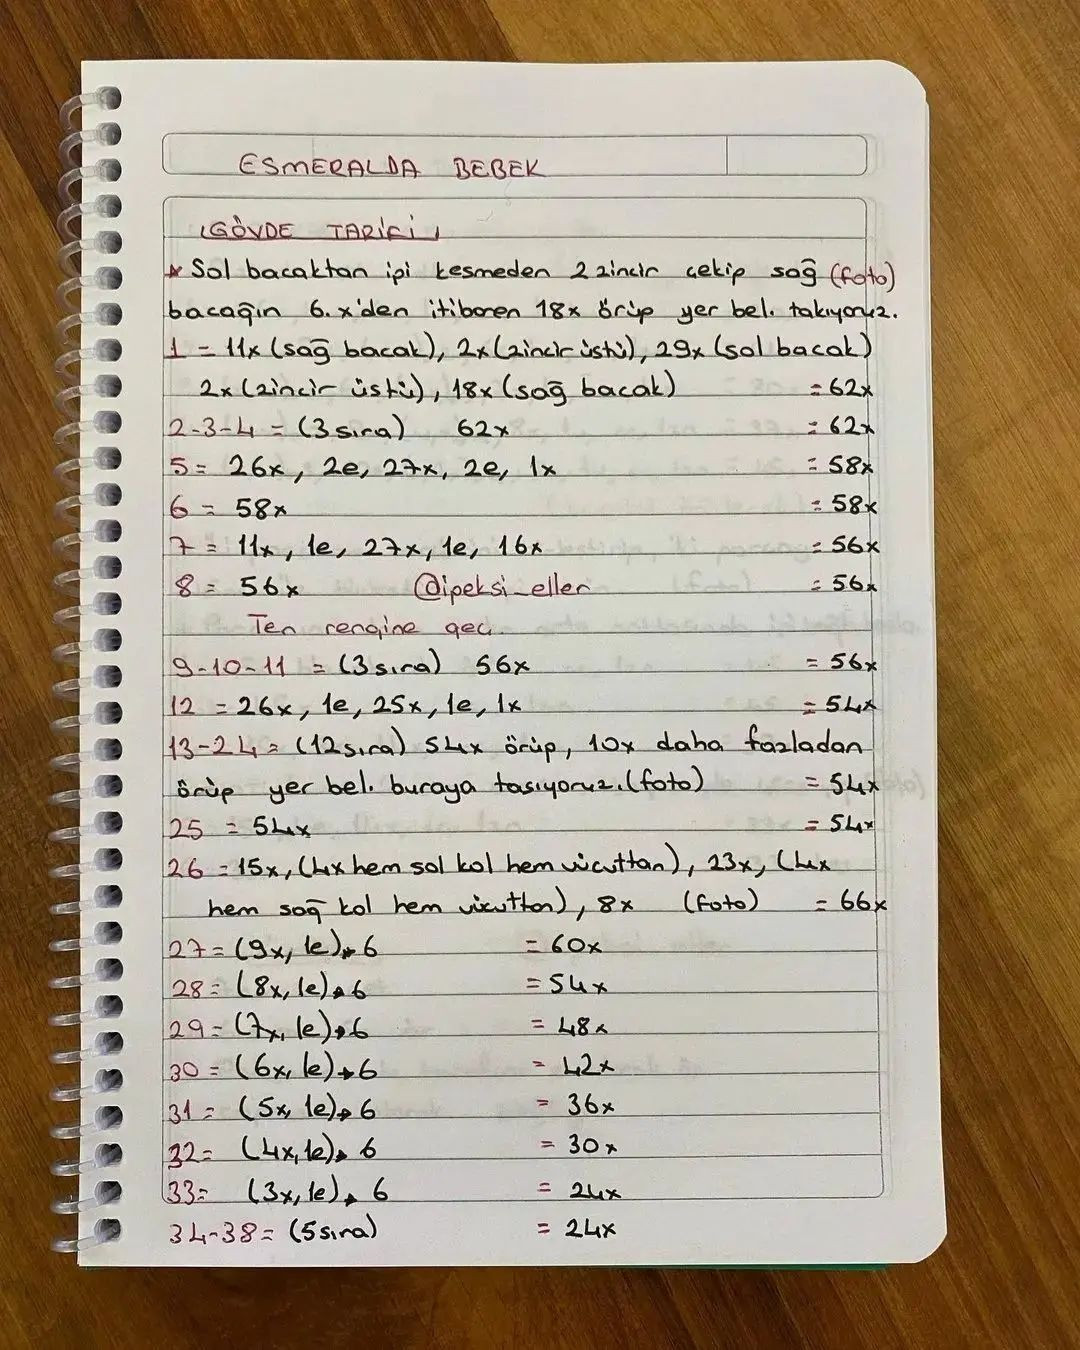 ESMERALDA BEBEK
GÖVDE TARİFİ
* Sol bacaktan ipi kesmeden 2 zincir çekip sağ (foto)
bacağın 6. x'den itibaren 18x örüp yer bel. takıyoruz.
1 = 11x (sağ bacak), 2x (zincir üstü), 29x (sol bacak)
2x (zincir üstü), 18x (sağ bacak) = 62x
2-3-4 = (3 sıra) 62x = 62x
5 = 26x, 2e, 27x, 2e, 1x = 58x
6 = 58x = 58x
7 = 11x, 1e, 27x, 1e, 16x = 56x
8 = 56x @ipeksi_eller = 56x
Ten rengine geç.
9-10-11 = (3 sıra) 56x = 56x
12 = 26x, 1e, 25x, 1e, 1x = 54x
13-24 = (12 sıra) 54x örüp, 10x daha fazladan
örüp yer bel. buraya taşıyoruz. (foto) = 54x
25 = 54x = 54x
26 = 15x, (4x hem sol kol hem vücuttan), 23x, (4x
hem sağ kol hem vücuttan), 8x (foto) = 66x
27 = (9x, 1e) * 6 = 60x
28 = (8x, 1e) * 6 = 54x
29 = (7x, 1e) * 6 = 48x
30 = (6x, 1e) * 6 = 42x
31 = (5x, 1e) * 6 = 36x
32 = (4x, 1e) * 6 = 30x
33 = (3x, 1e) * 6 = 24x
34-38 = (5 sıra) = 24x